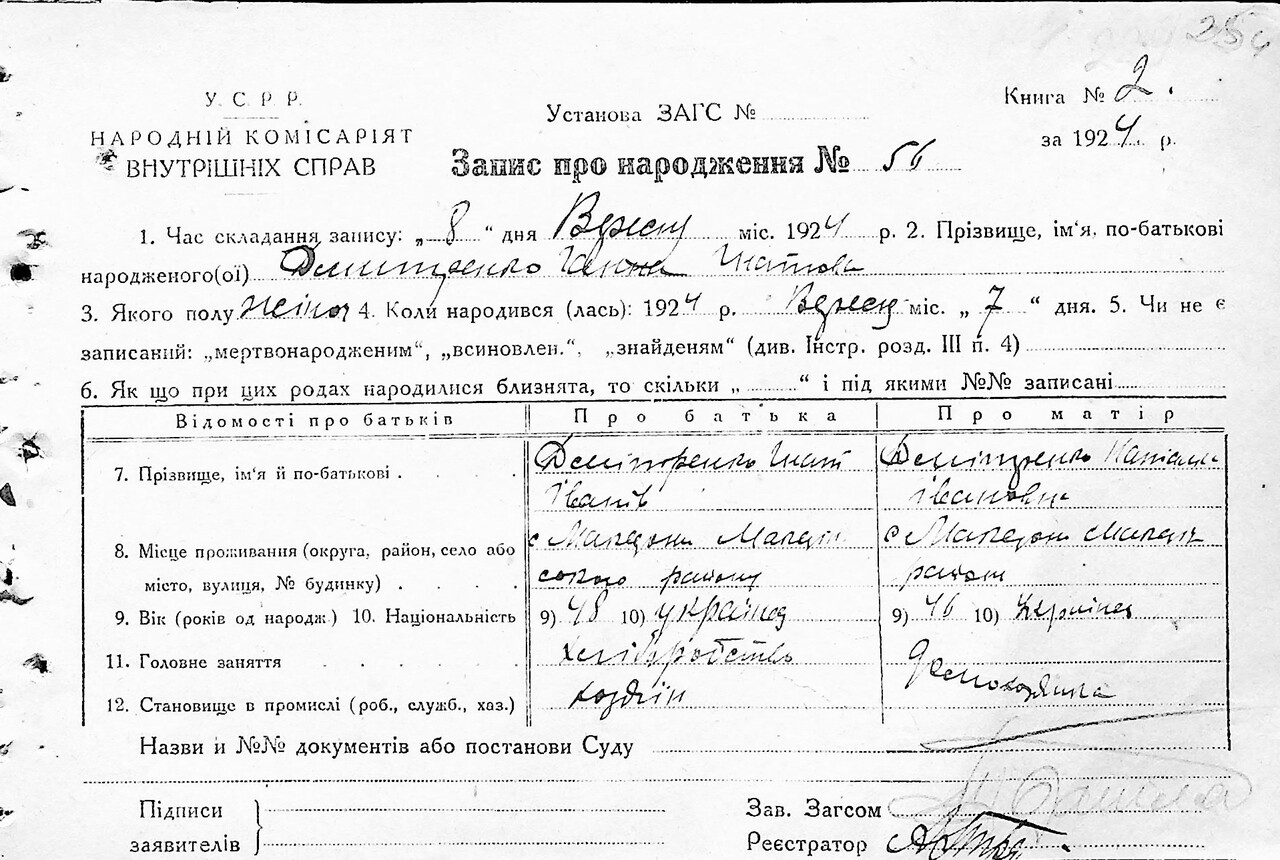 254
У. С. Р. Р.
НАРОДНІЙ КОМІСАРІЯТ
ВНУТРІШНІХ СПРАВ
Установа ЗАГС №
Книга № 2.
за 1924 р.
Запис про народження № 56
1. Час складання запису: „ 8 “ дня Вересня міс. 1924 р. 2. Прізвище, ім'я, по-батькові
народженого(ої) Демитренко Ганна Гнатова
3. Якого полу жіноч 4. Коли народився (лась): 1924 р. Вересня міс. „ 7 “ дня. 5. Чи не є
записаний: „мертвонародженим“, „всиновлен.“, „знайденям“ (див. Інстр. розд. III п. 4)
6. Як що при цих родах народилися близнята, то скільки „ “ і під якими №№ записані
Відомості про батьків Про батька Про матір
7. Прізвище, ім'я й по-батькові . . . Демитренко Гнат Демитренко Наталія
Іванів Івановна
8. Місце проживання (округа, район, село або с Македони с Македони
місто, вулиця, № будинку) . . району району
9. Вік (років од народж.) 10. Національність 9) 48 10) українец 9) 46 10) Українка
11. Головне заняття . . . . . хліборобство
12. Становище в промислі (роб., служб., хаз.) хозяїн Домохозяйка
Назви й №№ документів або постанови Суду
Підписи
заявителів
Зав. Загсом
Реєстратор